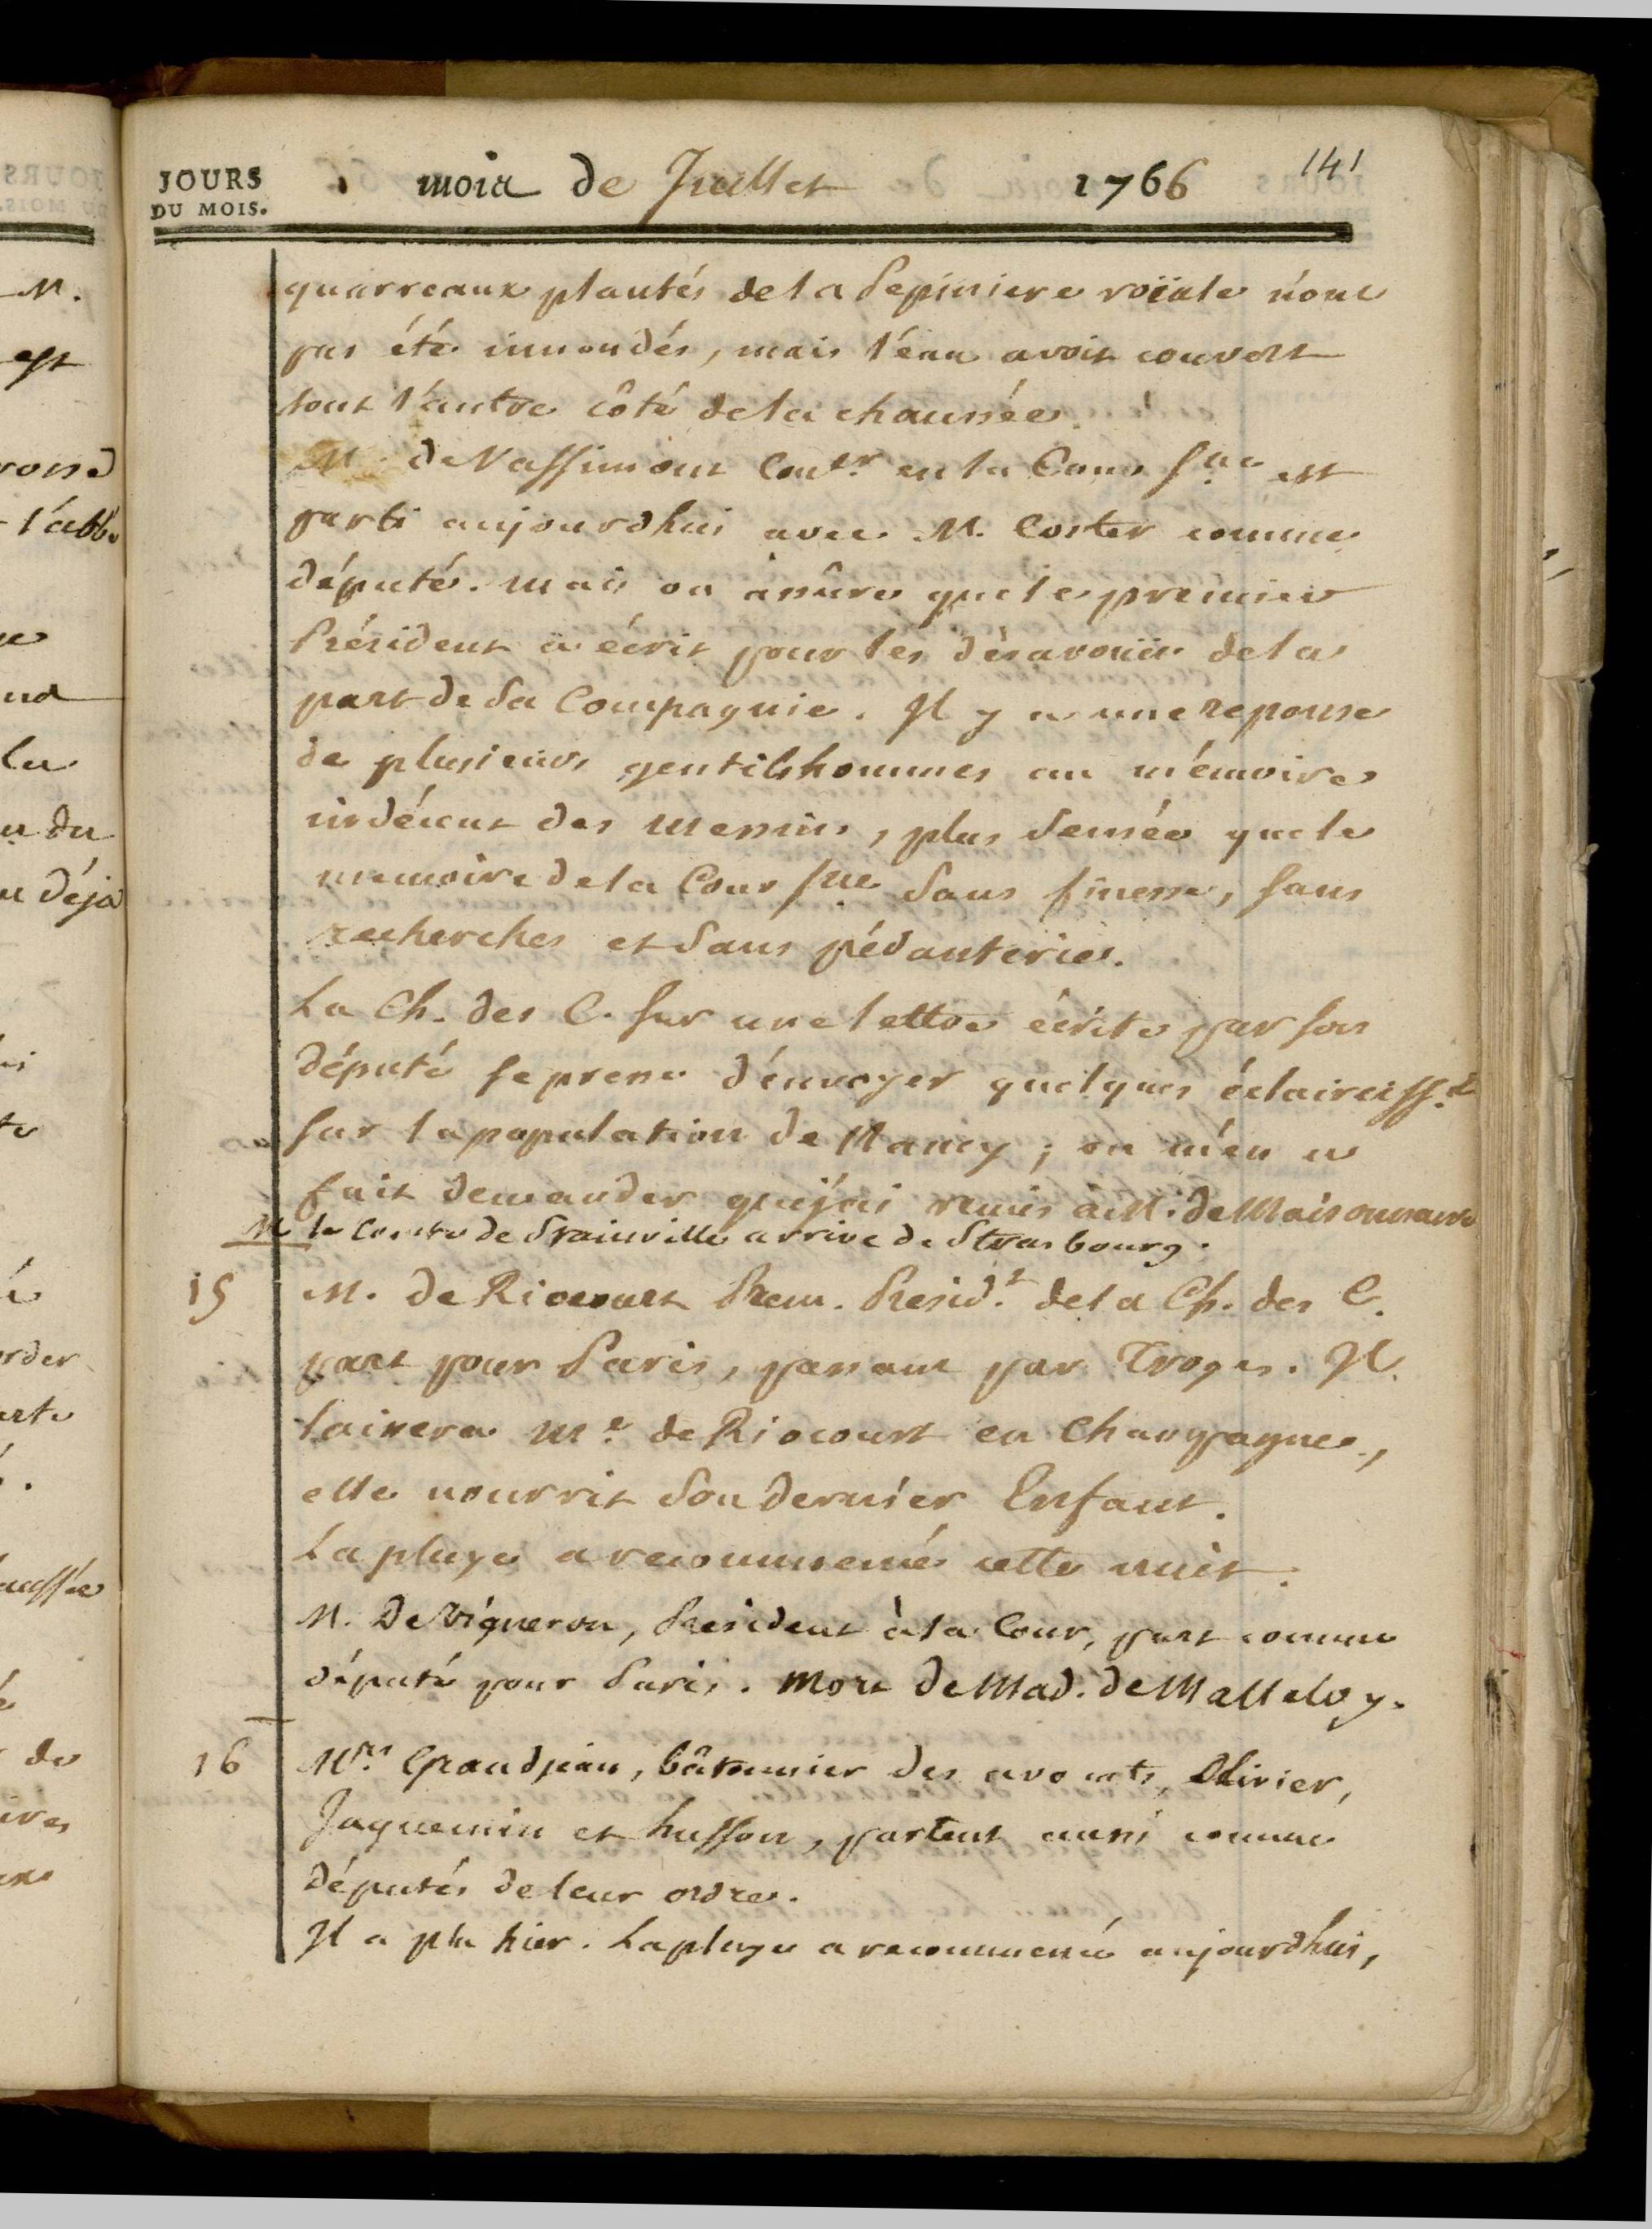 JOURS
DU MOIS.
mois de Juillet 1766 141
quarreaux plantés de la Pepiniere roïale n'ont
pas été innondés, mais l'eau avoit couvert
tout l'autre côté de la chaussée.
M. de Vassimont Con.er en la Cour S.ne est
parti aujourdhui avec M. Coster comme
député. mais on assûre que le premier
Président a écrit pour les désavouër de la
part de sa Compagnie. Il y a une reponse
de plusieurs gentilshommes au mémoire
indécent des Messins, plus sensée que le
memoire de la Cour S.ne sans finesse, sans
recherches et sans pédanteries.
La Ch. des C. sur une lettre écrite par son
député se presse d'envoyer quelques éclairciss.ts
sur la population de Nancy ; on m'en a
fait demander que j'ai remis à M. de Maisonneuve
M. le Comte de Stainville arrive de Strasbourg.
15 M. de Riocourt Prem. Presid.t de la Ch. des C.
part pour Paris, passant par Troyes. Il
laissera M.e de Riocourt en Champagne,
elle nourrit son dernier Enfant.
La pluye a recommencé cette nuit.
M. De Vigneron, President à la Cour, part comme
député pour Paris. Mort de Mad. de Malleloy.
16 M.rs Grandjean, bâtonnier des avocats, Olivier,
Jaquemin et husson, partent aussi comme
députés de leur ordre.
Il a plu hier. La pluye a recommencé aujourdhui,
M.
est
l'abbé
la
du
déja
de